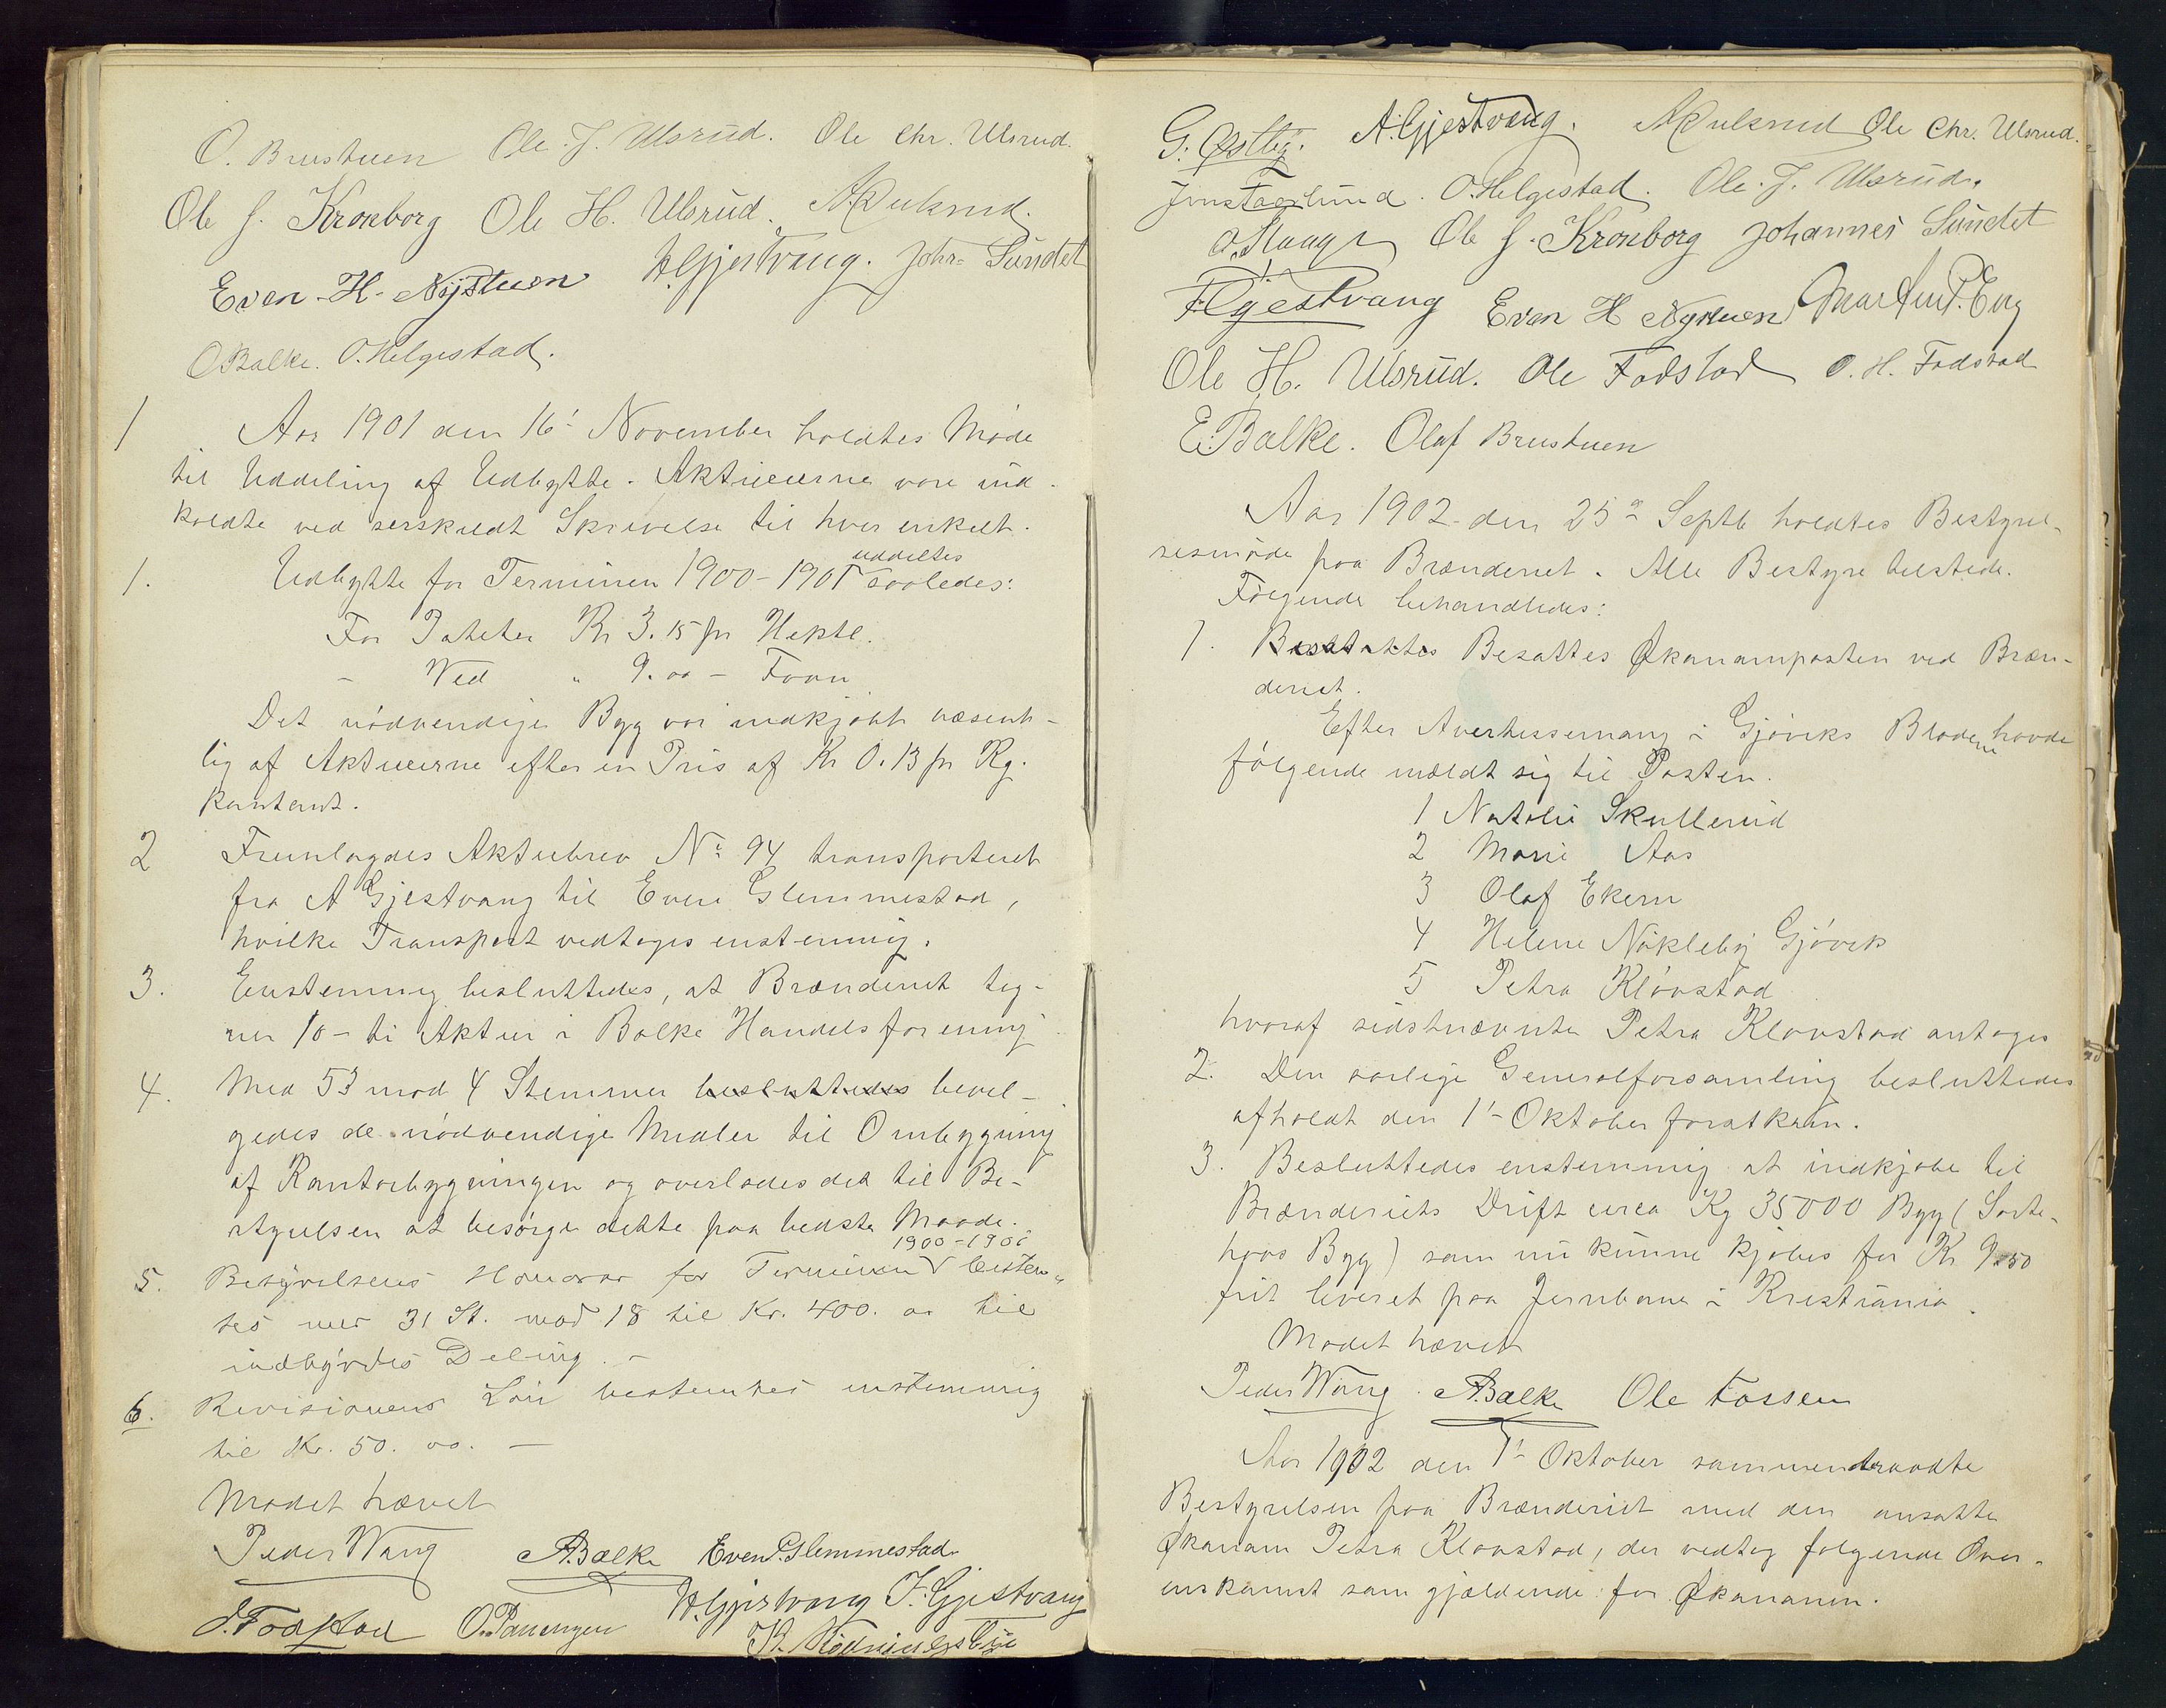 O. Brustuen Ole J. Ulsrud. Ole Chr. Ulsrud.
Ole J. Kronborg Ole H. Ulsrud. A. Rulsrud.
Even H. Nystuen A. Gjestvang. Johs Sundet
O Balke. O. Helgestad.
1 Aar 1901 den 16' November holdtes Møde
til Uddeling af Udbytte. Aktieeierne vare ind-
kaldte ved serskildt Skrivelse til hver enkelt.
1. Udbytte for Terminen 1900-1901 uddeltes saaledes:
For Poteter Kr 3.15 pr Hektl.
- Ved " 9.00 - Favn
Det nödvendige Byg var indkjøbt væsent-
lig af Aktieeierne efter en Pris af Kr 0.13 pr Kg.
kontant.
2 Fremlagdes Aktiebrev No 94 transporteret
fra A Gjestvang til Even Glemmestad,
hvilke Transport vedtoges enstemmig.
3. Enstemmig besluttedes, at Brænderiet teg-
ner 10 - ti Aktier i Balke Handelsforening
4. Med 53 mod 4 Stemmer besluttedes bevil-
gedes de nödvendige Midler til Ombygning
af Kontorbygningen og overlodes det til Be-
styrelsen at besörge dette paa bedste Maade.
5. Bestyrelsens Honorar for Terminen 1900-1901 bestem-
tes med 31 St. mod 18 til Kr. 400.00 til
indbyrdes Deling. -
6. Revisionens Lön bestemtes enstemmig
til Kr. 50.00. -
Mødet hævet
Peder Wang A. Balke Even P. Glemmestad
A. Gjestvang F. Gjestvang
J. Fodstad O. Paulengen
G. Østby. A. Gjestvang. A. Rulsrud Ole Chr. Ulsrud.
Jens Faarlund. O. Helgestad. Ole J. Ulsrud.
O. Hauge Ole J. Kronborg Johannes Sundet
F. Gjestvang Even H Nystuen Martin P. Eng
Ole H. Ulsrud. Ole Fodstad O. H. Fodstad
E. Balke. Olaf Brustuen
Aar 1902 den 25de Septb holdtes Bestyrel-
sesmöde paa Brænderiet. Alle Bestyre tilstede.
Fölgende behandledes:
1. Besattes Økonomposten ved Bræn-
deriet.
Efter Avertissemang i Gjøviks Bladene havde
fölgende meldt sig til Posten.
1 Natalie Skullerud
2 Marie Aas
3 Olaf Ekern
4 Helene Nøkleby Gjövik
5 Petra Klövstad
hvoraf sidstnævnte Petra Klovstad antoges
2. Den aarlige Generalforsamling besluttedes
afholdt den 1' Oktober förstkom.
3. Besluttedes enstemmig at indkjøbe til
Brænderiets Drift circa Kg 35000 Byg (Sorte-
havs Byg) som nu kunne kjøbes for Kr 9.50
frit leveret paa Jernbane i Kristiania.
Mødet hævet
Peder Wang A. Balke Ole Fossem
Aar 1902 den 1' Oktober sammentraadte
Bestyrelsen paa Brænderiet med den ansatte
Økonom Petra Klovstad, der vedtog følgende Over-
enskomst som gjældende for Økonomen.